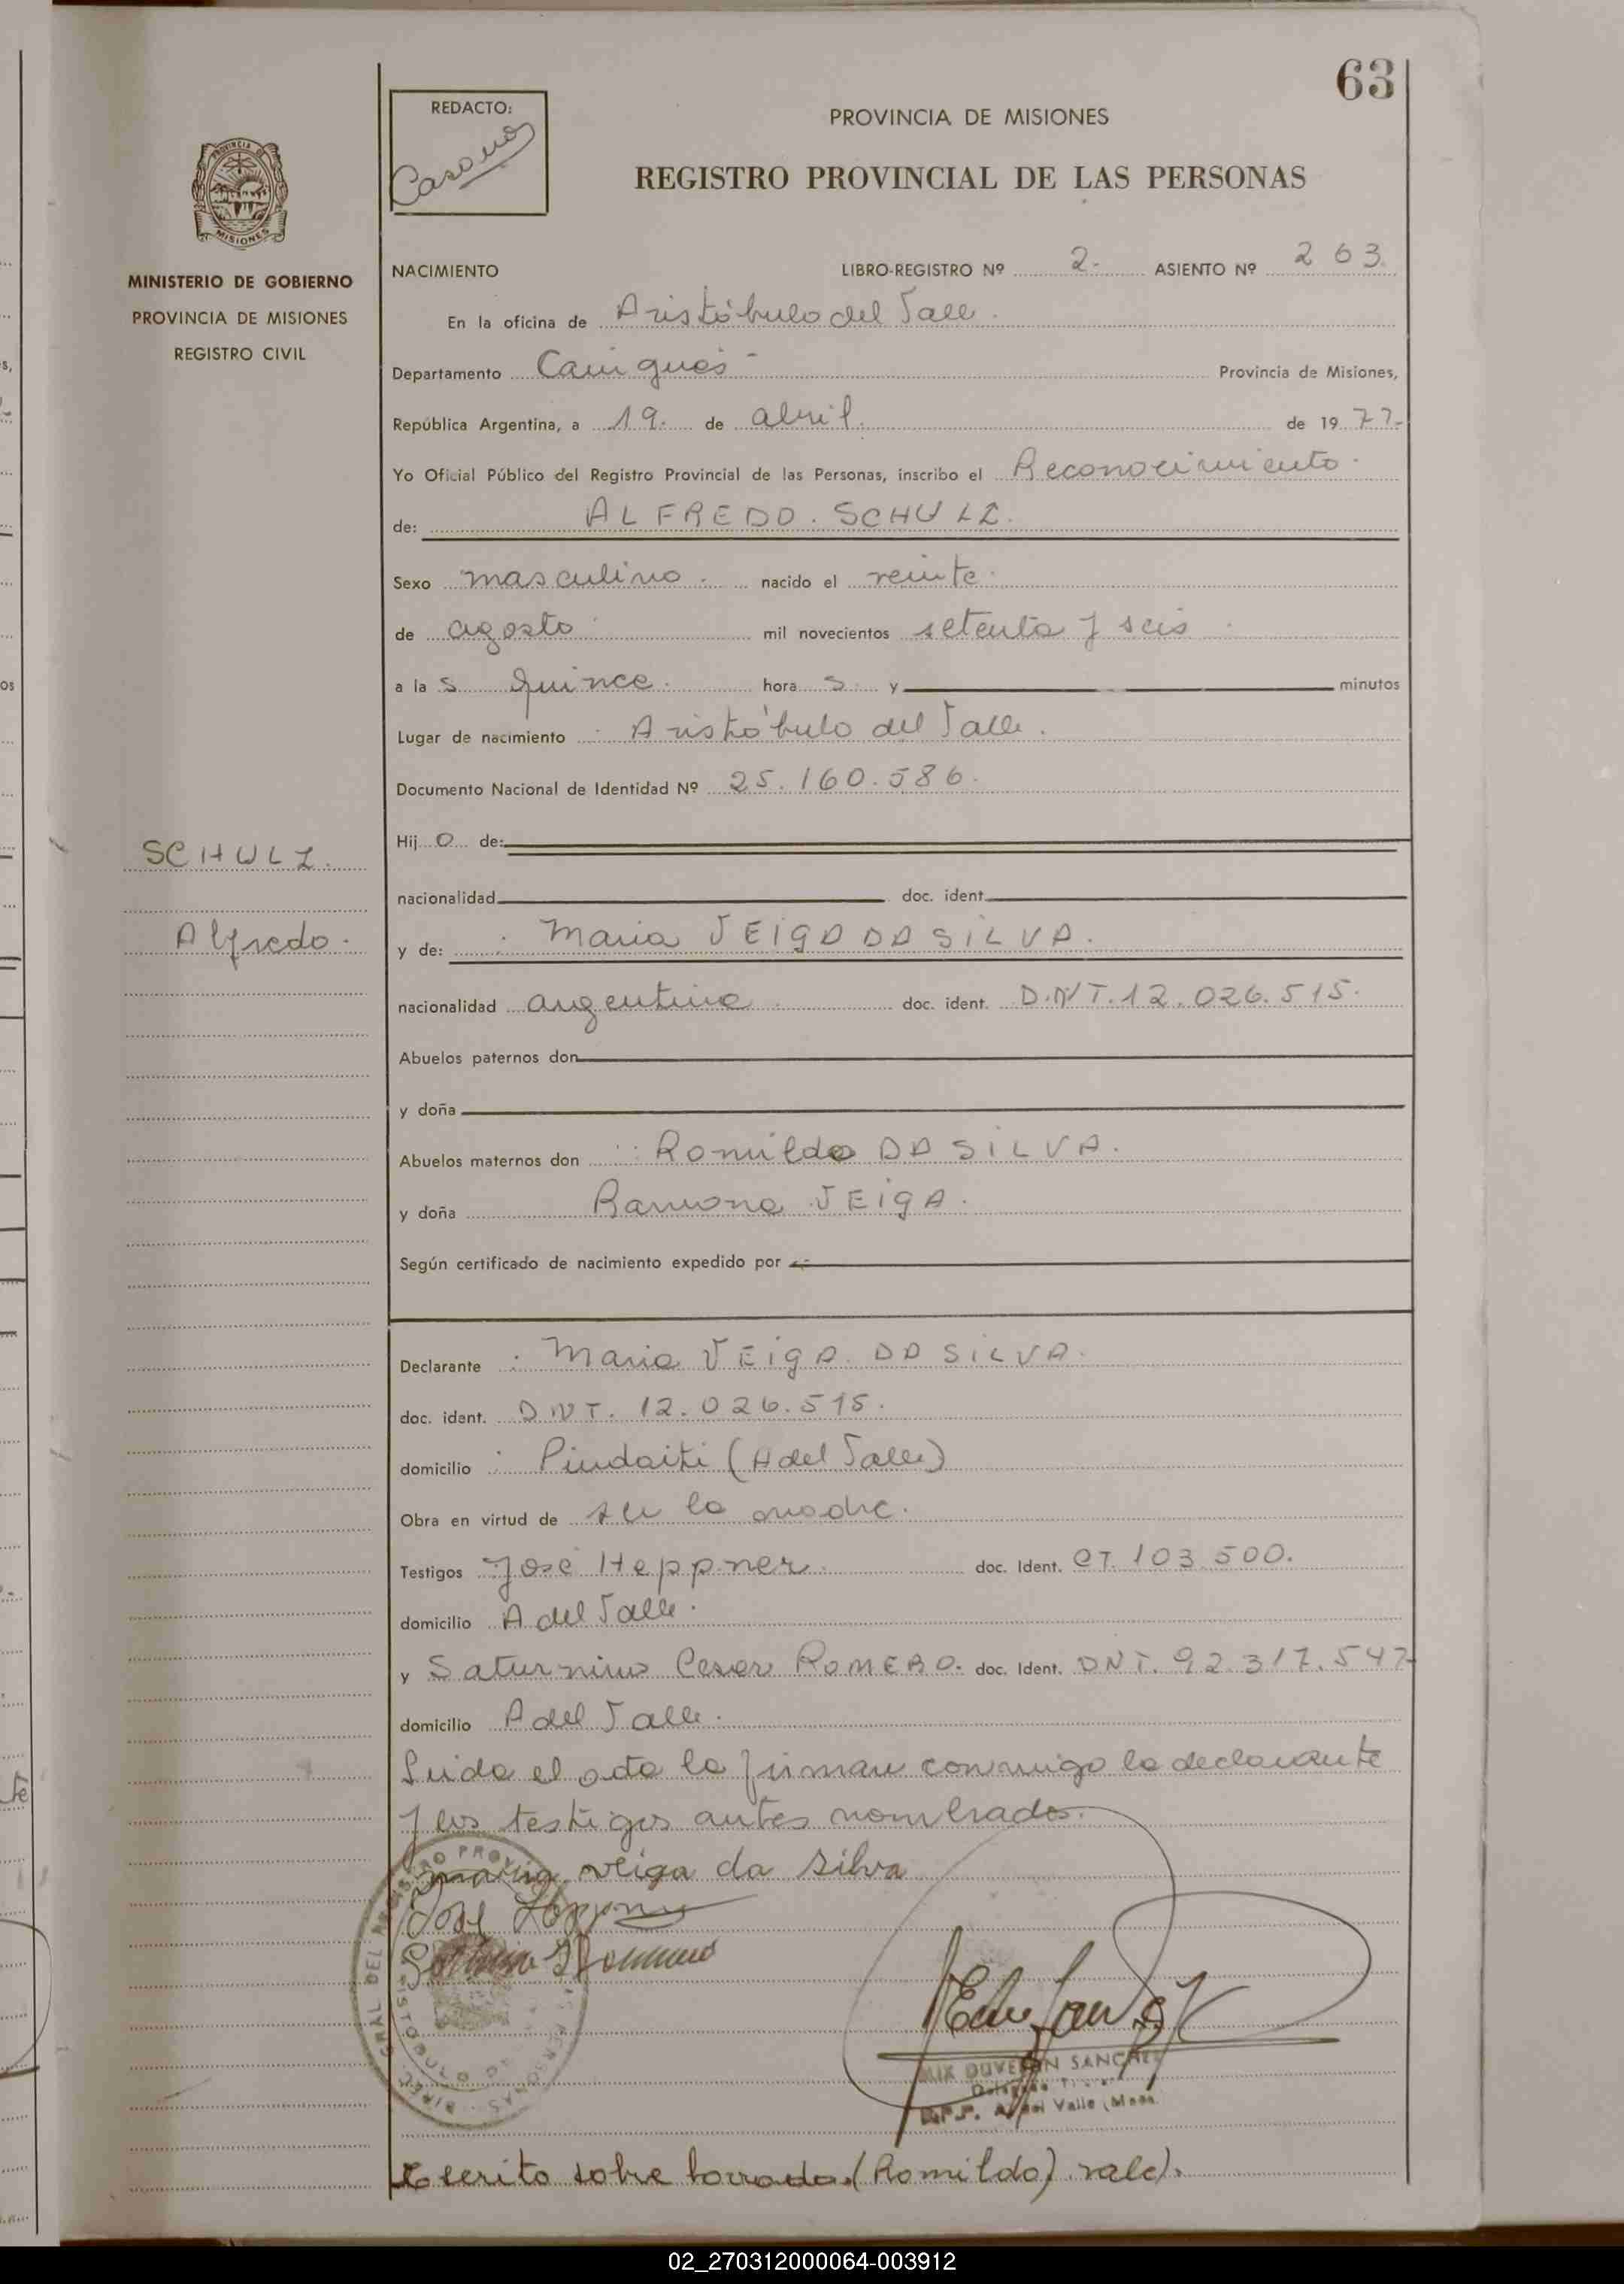 63
REDACTO:
PROVINCIA DE MISIONES
REGISTRO PROVINCIAL DE LAS PERSONAS
MISIONES
MINISTERIO DE GOBIERNO
PROVINCIA DE MISIONES
REGISTRO CIVIL
NACIMIENTO LIBRO-REGISTRO Nº 2- ASIENTO Nº 263.
En la oficina de Aristóbulo del Valle.
Departamento Cainguás - Provincia de Misiones,
República Argentina, a 19. de abril. de 1977.-
Yo Oficial Público del Registro Provincial de las Personas, inscribo el Reconocimiento.
de: ALFREDO. SCHULZ.
Sexo masculino. nacido el veinte.
de agosto mil novecientos setenta y seis
a las quince. horas y minutos
Lugar de nacimiento Aristóbulo del Valle.
Documento Nacional de Identidad Nº 25.160.586.
Hijo de:
SCHULZ.
nacionalidad doc. ident.
Alfredo.
y de: Maria VEIGA DA SILVA.
nacionalidad argentina doc. ident. D.N.I. 12.026.515.
Abuelos paternos don
y doña
Abuelos maternos don Romildo DA SILVA.
y doña Ramona VEIGA.
Según certificado de nacimiento expedido por
Declarante : Maria VEIGA DA SILVA.
doc. ident. D.N.I. 12.026.515.
domicilio : Pindaiti (A del Valle)
Obra en virtud de ser la madre.
Testigos José Heppner. doc. Ident. CI. 103.500.
domicilio A del Valle.
y Saturnino Cesar ROMERO. doc. Ident. DNI. 92.317.547-
domicilio A del Valle.
Leida el acta la firman conmigo la declarante
y los testigos antes nombrados.
maria veiga da silva
José Heppner
Romero
DUVERAN SANCHEZ
del Valle
Escrito sobre borrado (Romildo) vale).
02_270312000064-003912